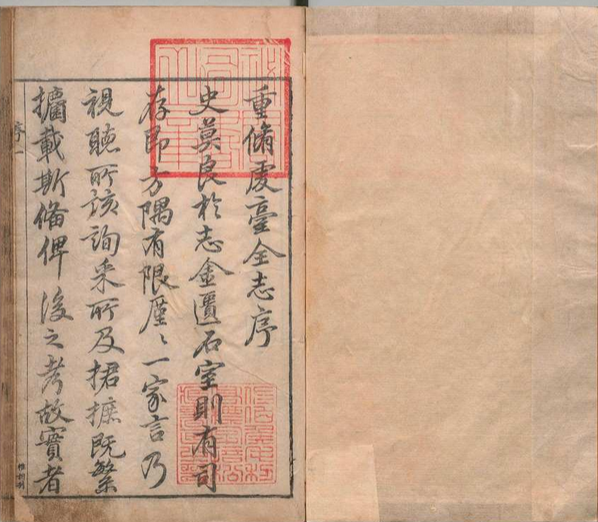 重脩虔臺全志序
史莫良於志金匱石室則有司
存即方隅有限廑〻一家言乃
視聽所該詢采所及捃摭既繁
攟載斯備俾後之考故實者
序一